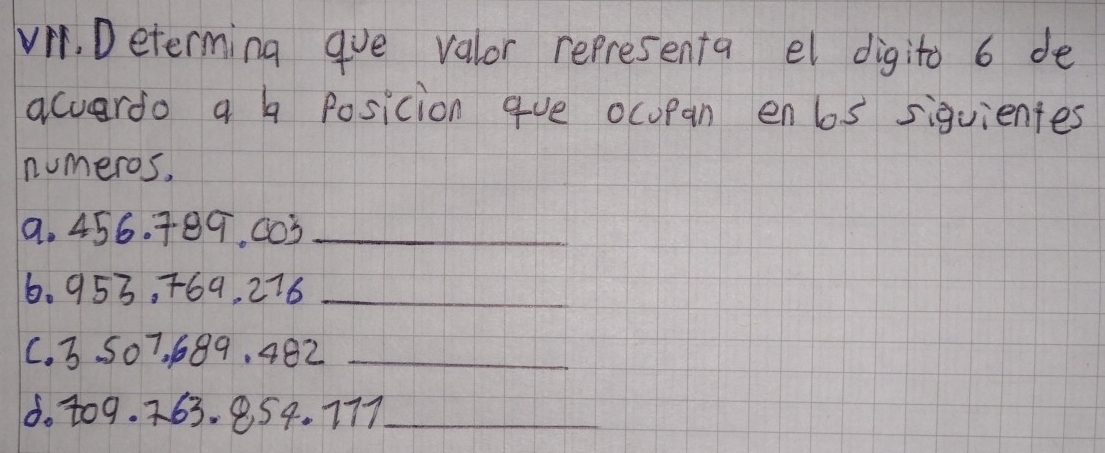 VII. Determina que valor representa el digito 6 de
acuerdo a la Posicion que ocupan en los siguientes
numeros.
a. 456.789.003
b. 953.769.276
c. 3.507.689.482
d. 709.763.854.777